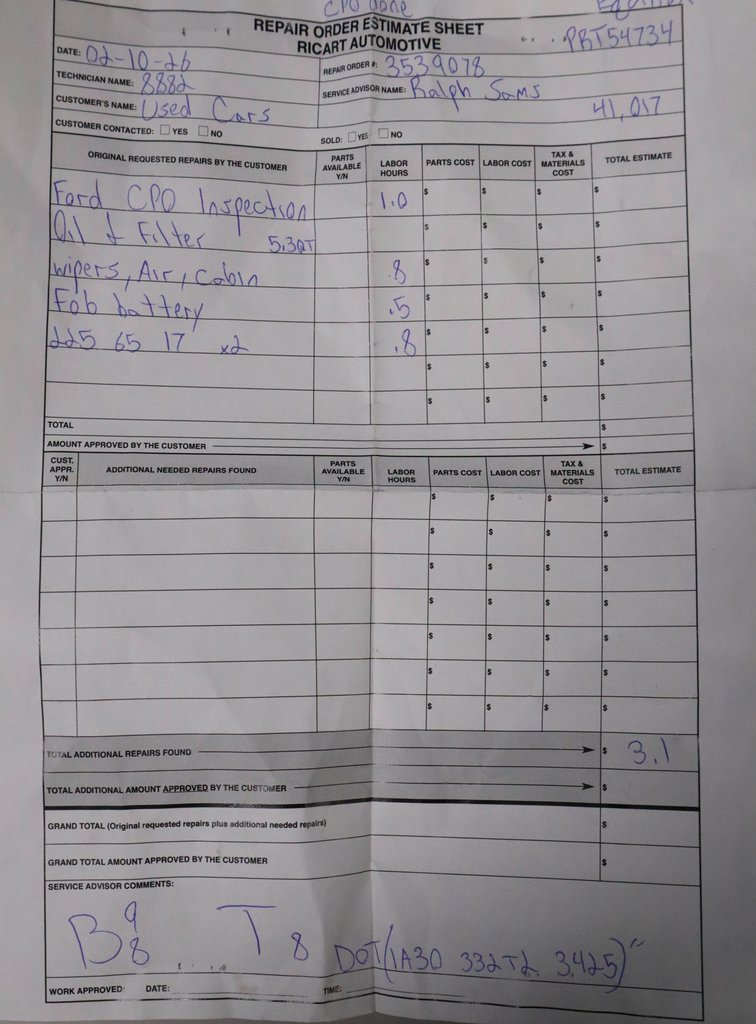 CPO done
REPAIR ORDER ESTIMATE SHEET
RICART AUTOMOTIVE
PBT54734
DATE: 02-10-26
REPAIR ORDER #: 3539078
TECHNICIAN NAME: 8882
SERVICE ADVISOR NAME: Ralph Sams
CUSTOMER'S NAME: Used Cars
41,017
CUSTOMER CONTACTED: YES NO
SOLD: YES NO
ORIGINAL REQUESTED REPAIRS BY THE CUSTOMER PARTS AVAILABLE Y/N LABOR HOURS PARTS COST LABOR COST TAX & MATERIALS COST TOTAL ESTIMATE
Ford CPO Inspection 1.0 $ $ $ $
Oil & Filter 5.3QT $ $ $ $
wipers, Air, Cabin .8 $ $ $ $
Fob battery .5 $ $ $ $
225 65 17 x2 .8 $ $ $ $
$ $ $ $
$ $ $ $
TOTAL $
AMOUNT APPROVED BY THE CUSTOMER $
CUST. APPR. Y/N ADDITIONAL NEEDED REPAIRS FOUND PARTS AVAILABLE Y/N LABOR HOURS PARTS COST LABOR COST TAX & MATERIALS COST TOTAL ESTIMATE
$ $ $ $
$ $ $ $
$ $ $ $
$ $ $ $
$ $ $ $
$ $ $ $
$ $ $ $
TOTAL ADDITIONAL REPAIRS FOUND $ 3.1
TOTAL ADDITIONAL AMOUNT APPROVED BY THE CUSTOMER $
GRAND TOTAL (Original requested repairs plus additional needed repairs) $
GRAND TOTAL AMOUNT APPROVED BY THE CUSTOMER $
SERVICE ADVISOR COMMENTS:
B 9 8 T 8 DOT(1A30 332T2 3425)"
WORK APPROVED: DATE: TIME: